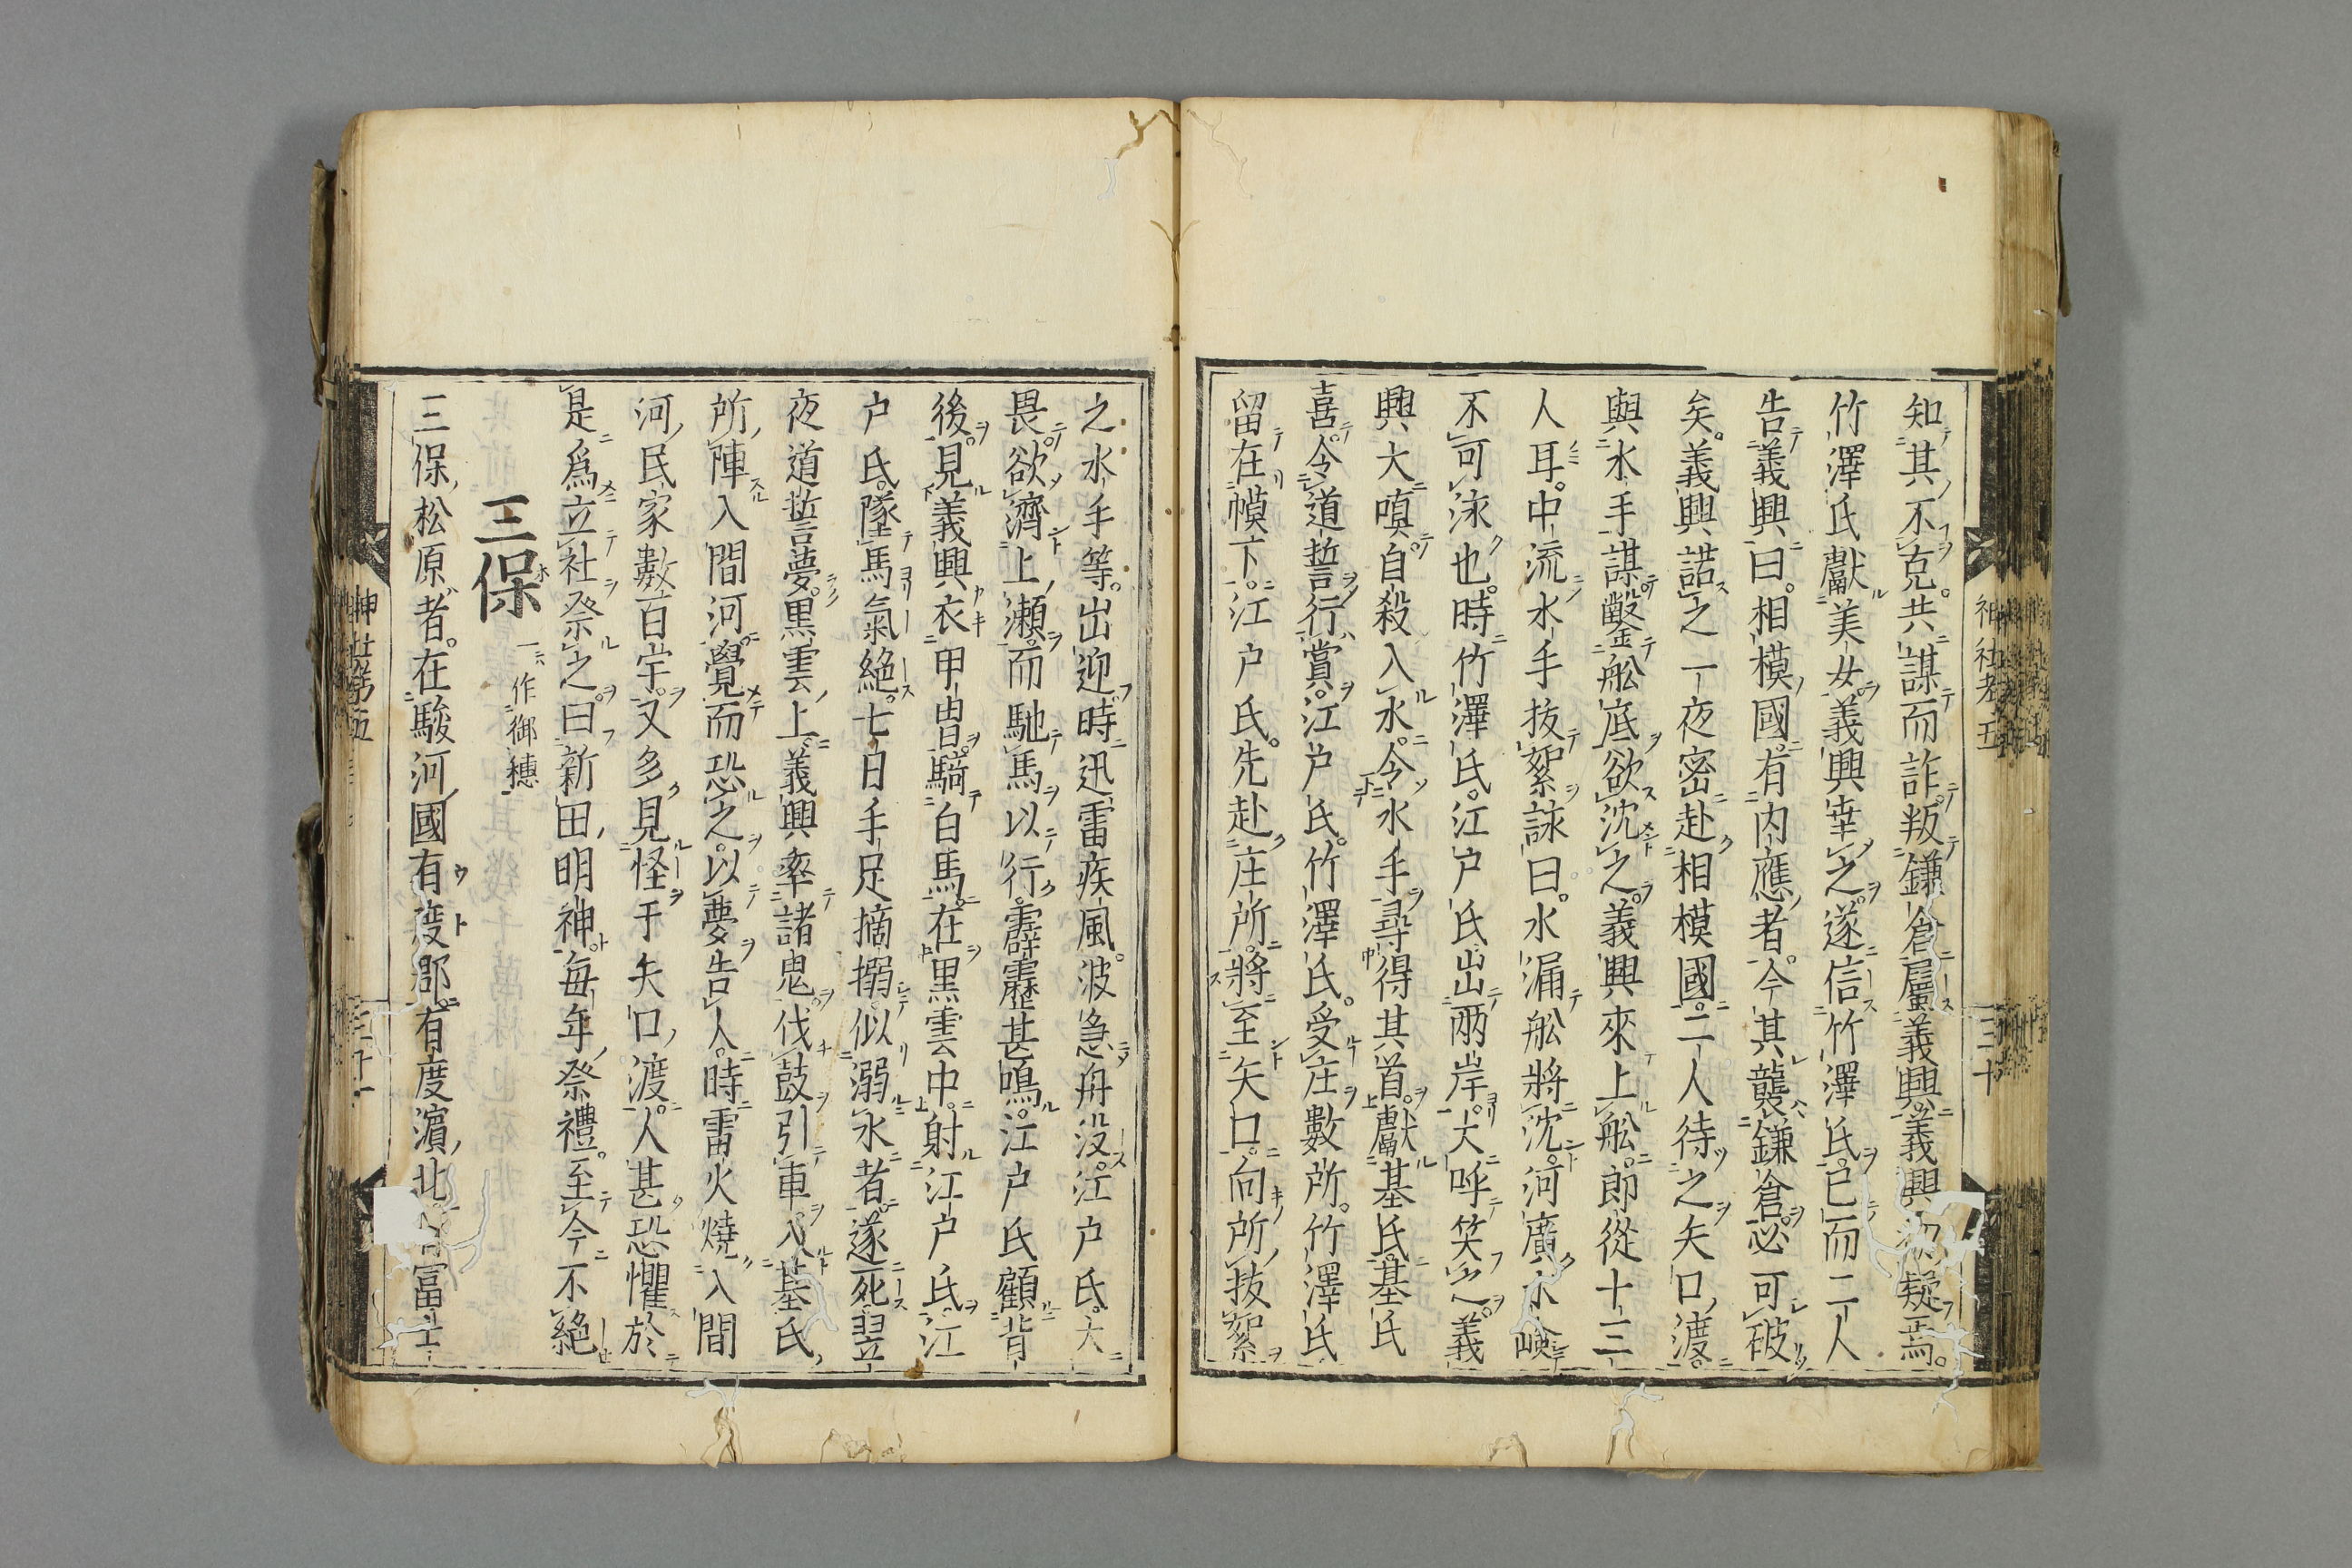 知其不克共謀而詐叛鎌倉屬義興義興初疑焉
竹澤氏獻美女義興幸之遂信竹澤氏已而二人
告義興曰相模國有内應者今其襲鎌倉必可破
矣義興諾之一夜密赴相模國二人待之矢口渡
與水手謀鑿舩底欲沈之義興來上舩郎從十三
人耳中流水手抜絮詠曰水漏舩將沈河廣水嶮
不可泳也時竹澤氏江戸氏出兩岸大呼笑之義
興大嗔自殺入水令水手尋得其首獻基氏基氏
喜令道誓行賞江戸氏竹澤氏受庄數所竹澤氏
留在幙下江戸氏先赴庄所將至矢口向所抜絮
之水手等出迎時迅雷疾風波急舟没江戸氏大
畏欲濟上瀬而馳馬以行霹靂甚鳴江戸氏顧背
後見義興衣甲冑騎白馬在黒雲中射江戸氏江
戸氏墜馬氣絶七日手足摘搦似溺水者遂死翌
夜道誓夢黒雲上義興率諸鬼伐鼓引車入基氏
所陣入間河覺而恐之以夢告人時雷火燒入間
河民家數百宇又多見怪于矢口渡人甚恐懼於
是爲立社祭之曰新田明神毎年祭禮至今不絶
三保 一作御穗
三保松原者在駿河國有度郡有度濵北有富士
神社考五
三十
神社考五
三十一